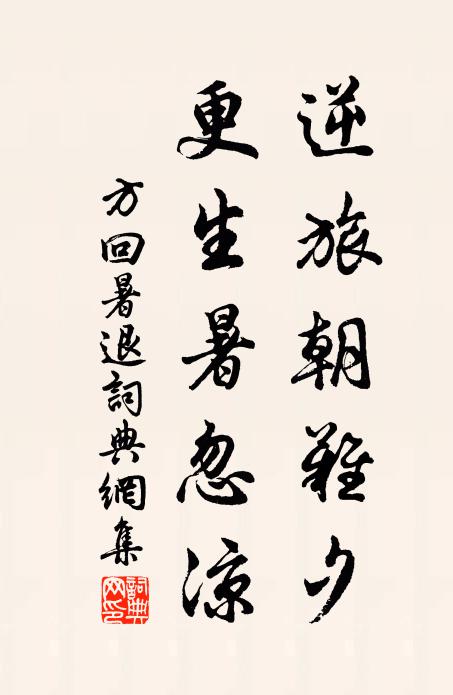 逆旅朝難夕
更生暑忽涼
方回暑退詞典網集
詞典網印